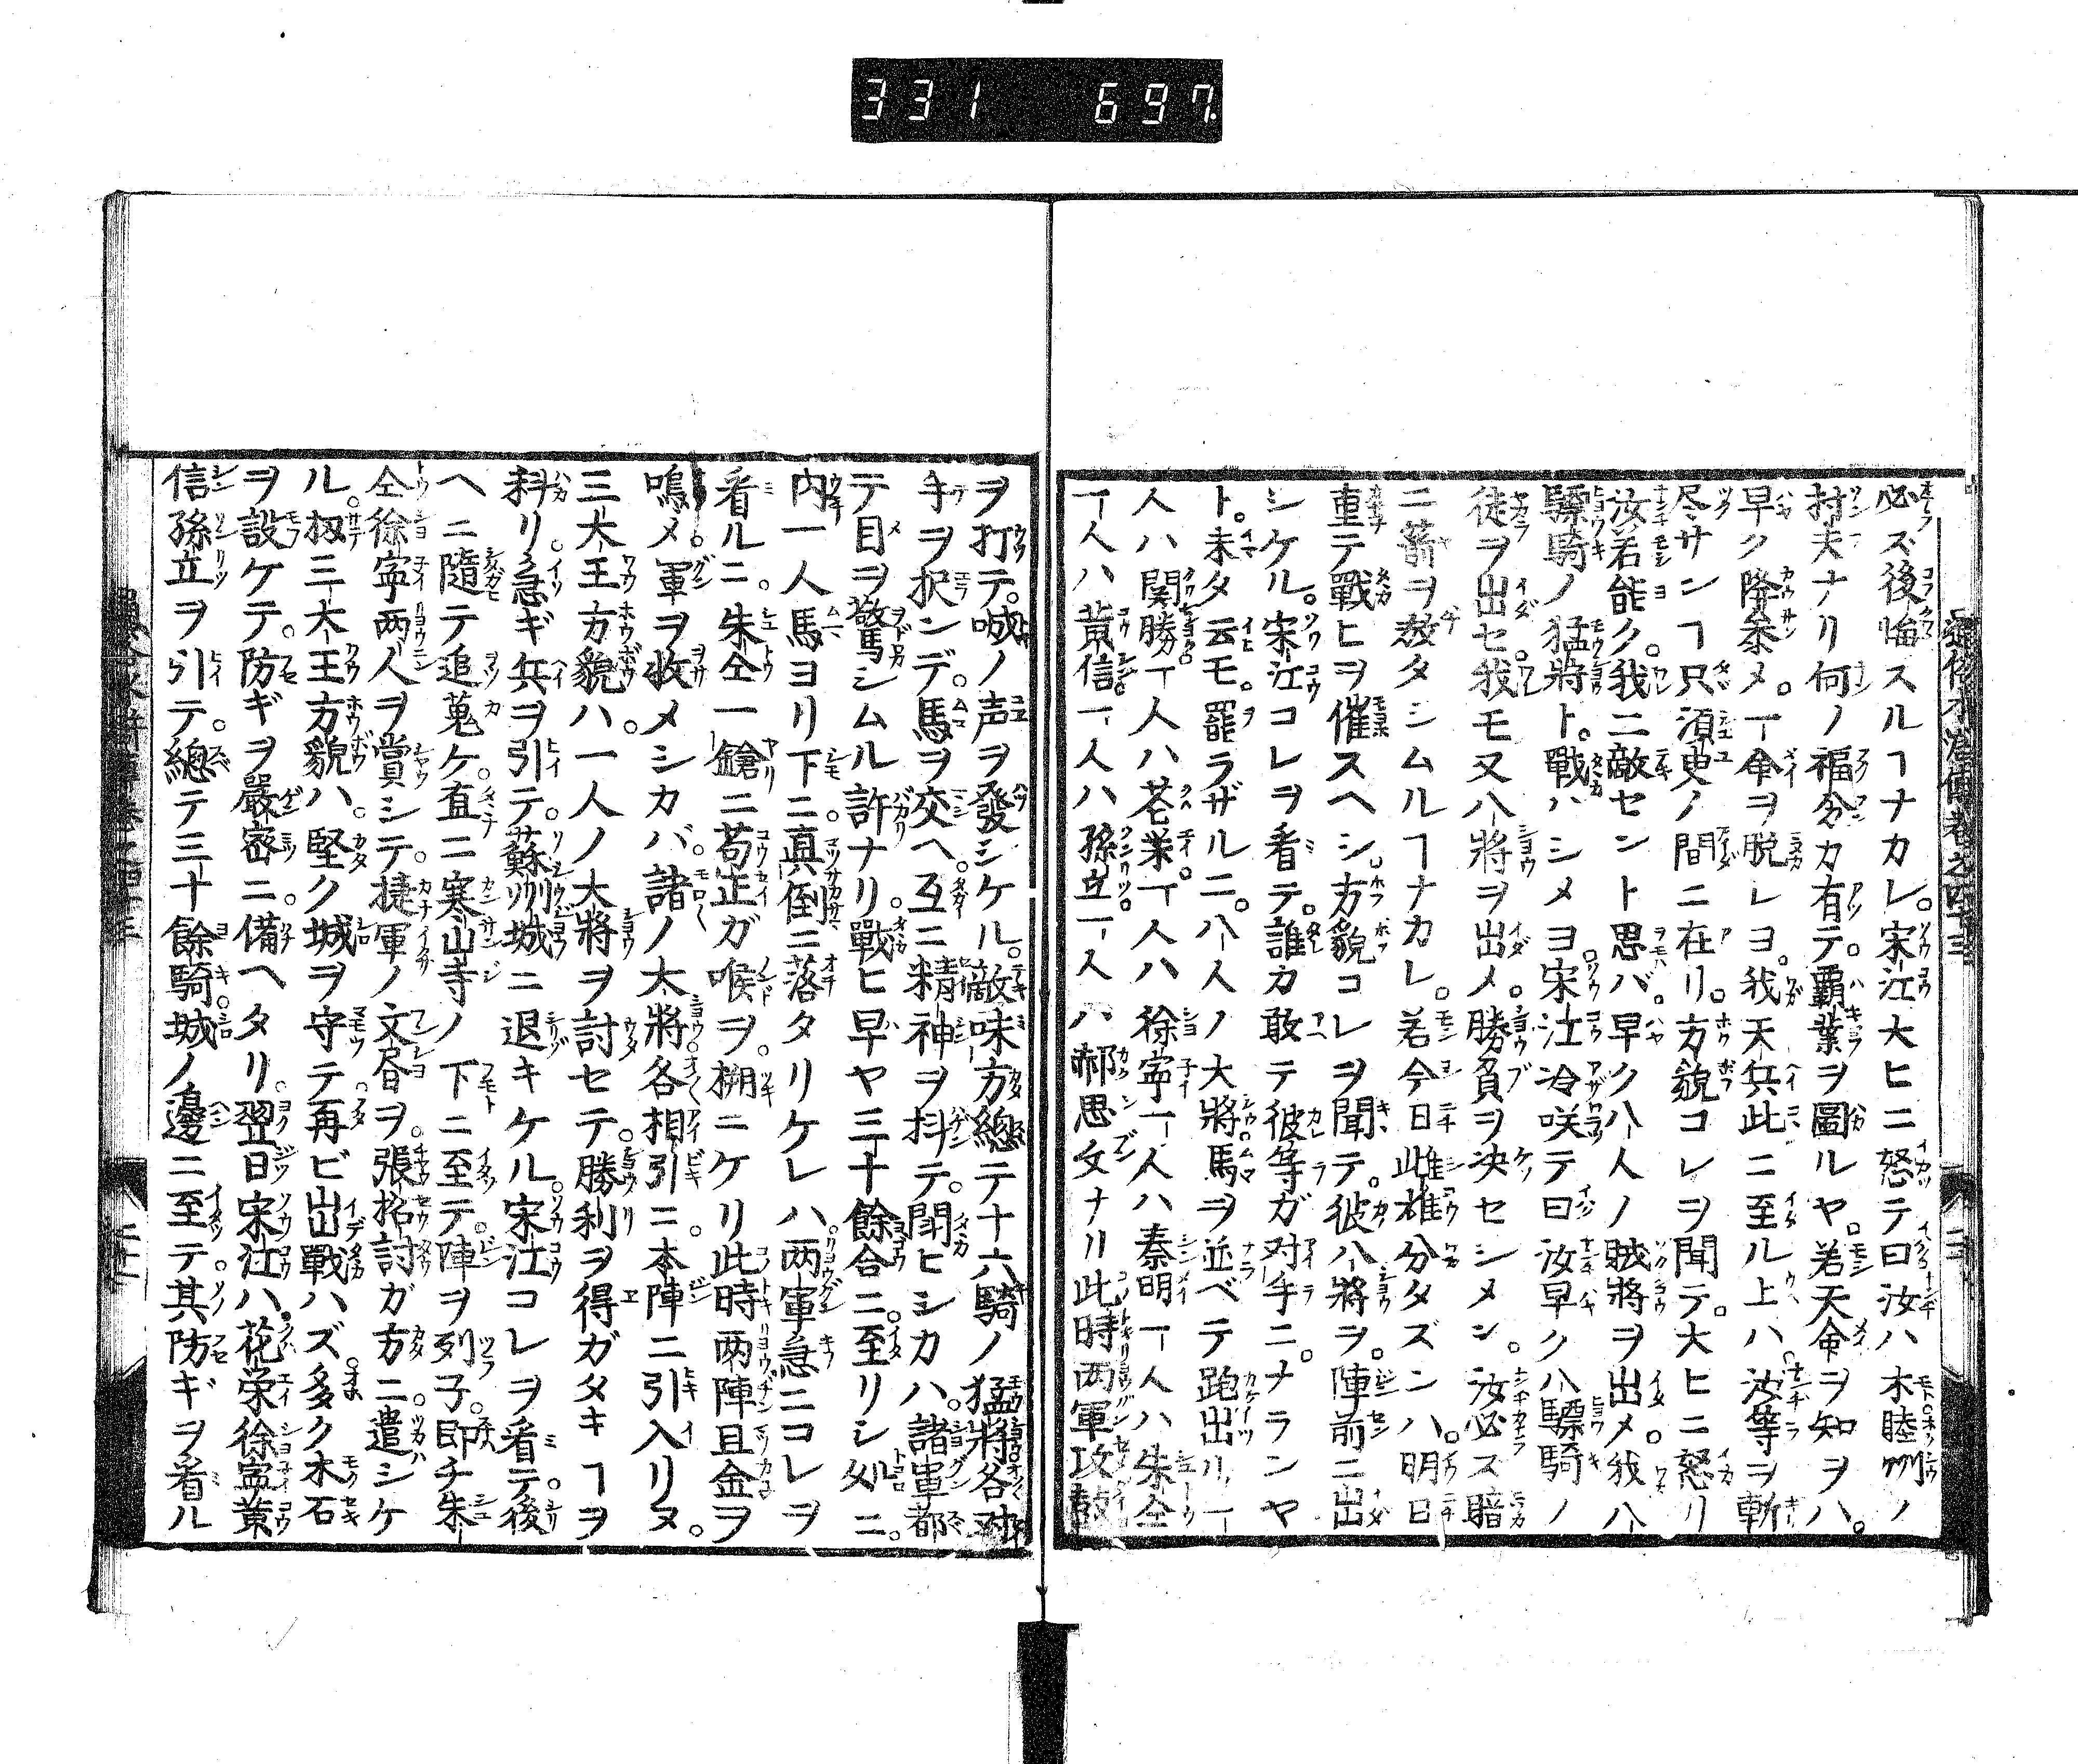 331 697
通俗水滸傳巻之四十三
必ズ後悔スルヿナカレ。宋江大ヒニ怒テ曰汝ハ木睦州ノ
村夫ナリ何ノ福分カ有テ。覇業ヲ圖ルヤ。若天命ヲ知ヲハ。
早ク降参メ。一命ヲ脱レヨ。我天兵此ニ至ル上ハ。汝等ヲ斬
尽サンヿ只須更ノ間ニ在リ。方貌コレヲ聞テ。大ヒニ怒リ
汝若能ク。我ニ敵セント思バ。早ク八人ノ賊將ヲ出メ。我八
驃騎ノ猛將ト。戰ハシメヨ。宋江冷咲テ曰汝早ク八驃騎ノ
徒ヲ出セ。我モ又八將ヲ出メ。勝負ヲ决セシメン。汝必ス暗
ニ箭ヲ發タシムルヿナカレ。若今日雌雄分タズンハ。明日
重テ戰ヒヲ催スヘシ。方貌コレヲ聞テ。彼八將ヲ。陣前ニ出
シケル。宋江コレヲ看テ。誰カ敢テ彼等ガ対手ニ。ナランヤ
ト。未タ云モ。罷ラザルニ。八人ノ大將馬ヲ並ベテ跑出ル。一
人ハ関勝一人ハ花栄。一人ハ徐寧一人ハ秦明一人ハ朱仝
一人ハ黄信。一人ハ孫立一人ハ郝思文ナリ此時両軍攻鼓
ヲ打テ。喊ノ声ヲ發シケル。敵味方總テ十六騎ノ猛將各対
手ヲ択ンデ。馬ヲ交ヘ。互ニ精神ヲ抖テ。閗ヒシカハ。諸軍都
テ目ヲ驚シムル許ナリ戰ヒ早ヤ三十餘合ニ。至リシ処ニ。
内一人馬ヨリ下ニ。眞倒ニ落タリケレハ。両軍急ニコレヲ
看ルニ。朱仝一鎗ニ苟正ガ喉ヲ。搠ニケリ此時両陣且金ヲ
鳴メ。軍ヲ收メシカバ。諸ノ大將各相引ニ。本陣ニ引入リヌ。
三大王方貌ハ。一人ノ大將ヲ討セテ。勝利ヲ得ガタキヿヲ
料リ。急ギ兵ヲ引テ。蘇州城ニ退キケル。宋江コレヲ看テ。後
ヘニ隨テ追蒐ケ。直ニ寒山寺ノ下ニ至テ。陣ヲ列子。即チ朱
仝徐寧両人ヲ賞シテ。捷軍ノ文書ヲ。張招討ガ方ニ。遣シケ
ル。扨三大王方貌ハ。堅ク城ヲ守テ。再ビ出戰ハズ。多ク木石
ヲ設ケテ。防ギヲ嚴密ニ。備ヘタリ。翌日宋江ハ。花栄徐寧黄
信孫立ヲ引テ。總テ三十餘騎。城ノ邊ニ至テ。其防ギヲ看ル